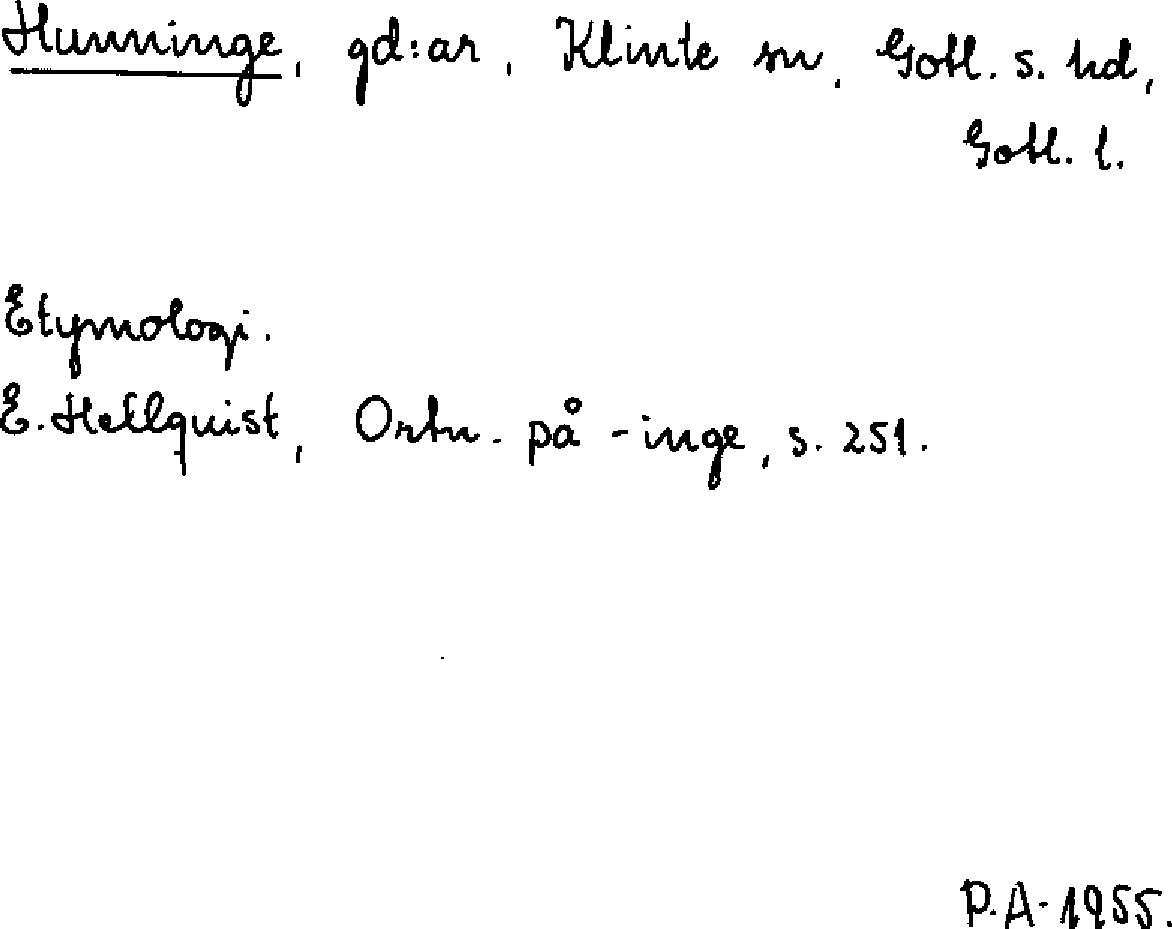 Hunninge, gd:ar, Klinte sn, Gotl. s. hd,
Gotl. l.
Etymologi.
E. Hellquist, Ortn. på -inge, s. 251.
P.A. 1955.